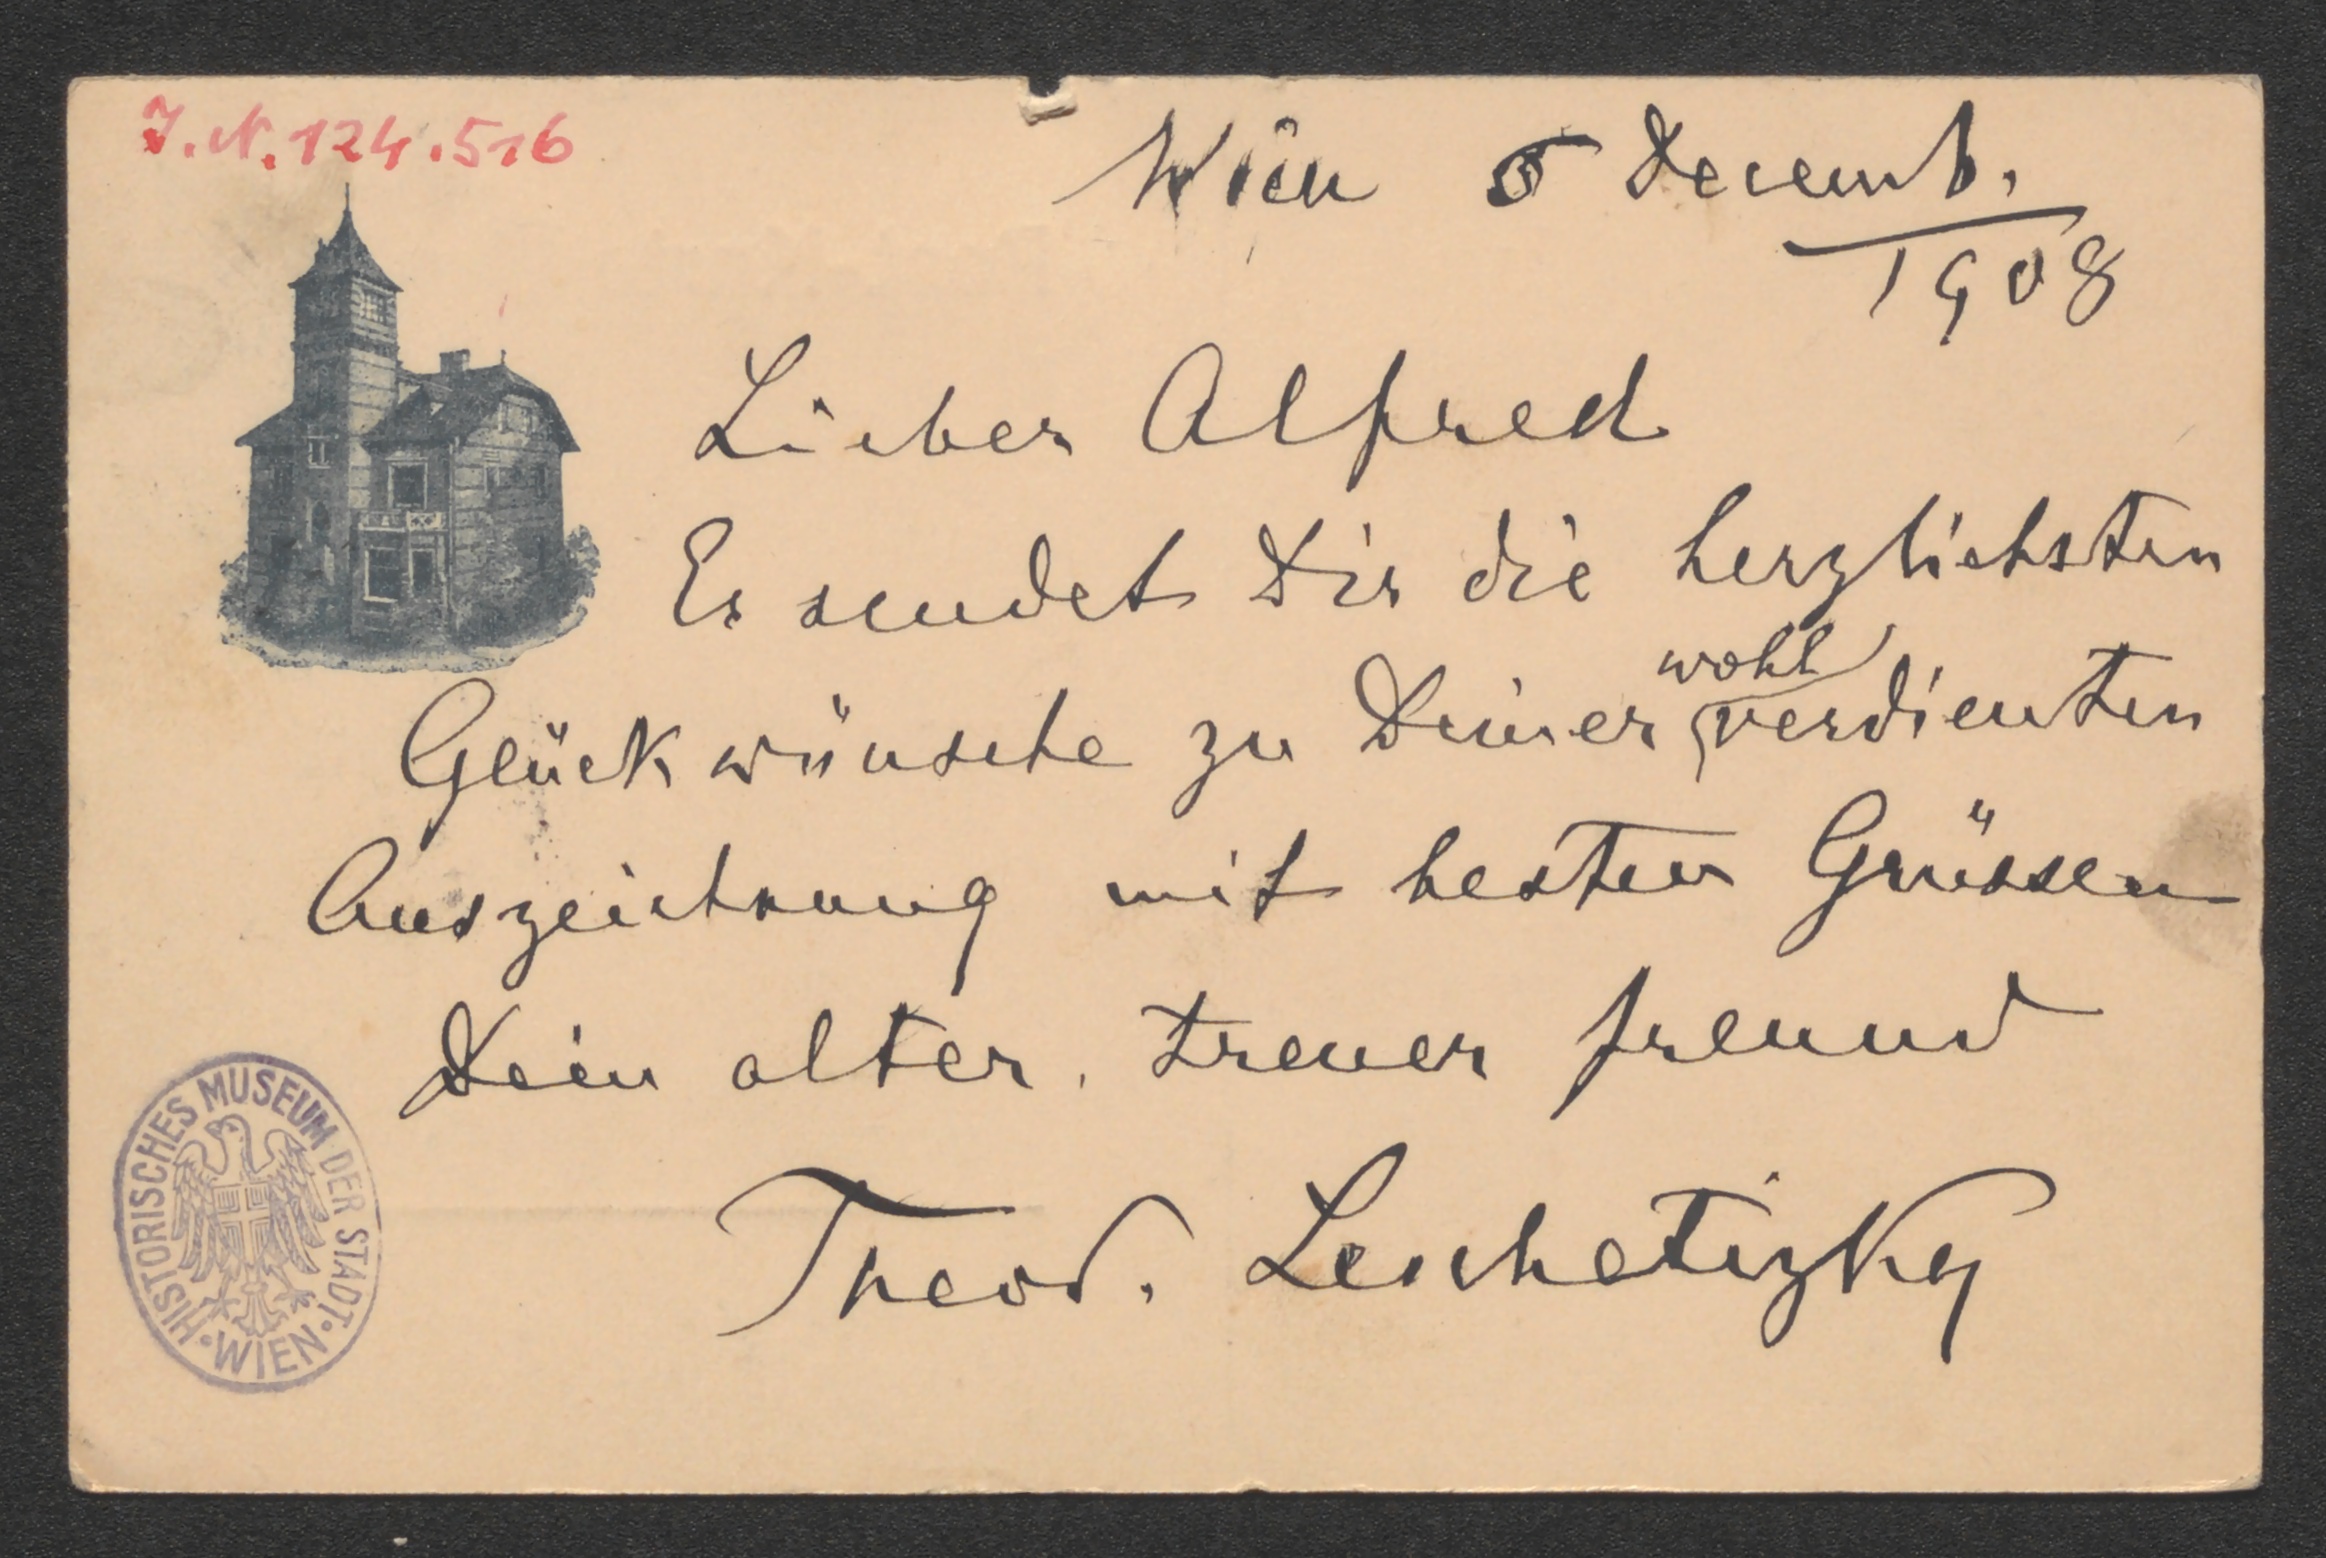 J.N. 124.516
Wien 5 Decemb.
1908
Lieber Alfred
Es sendet Dir die herzlichsten
wohl
Glückwünsche zu Deiner verdienten
Auszeichnung mit besten Grüssen
Dein alter, treuer Freund
Theod. Leschetizky
HISTORISCHES MUSEUM DER STADT · WIEN ·